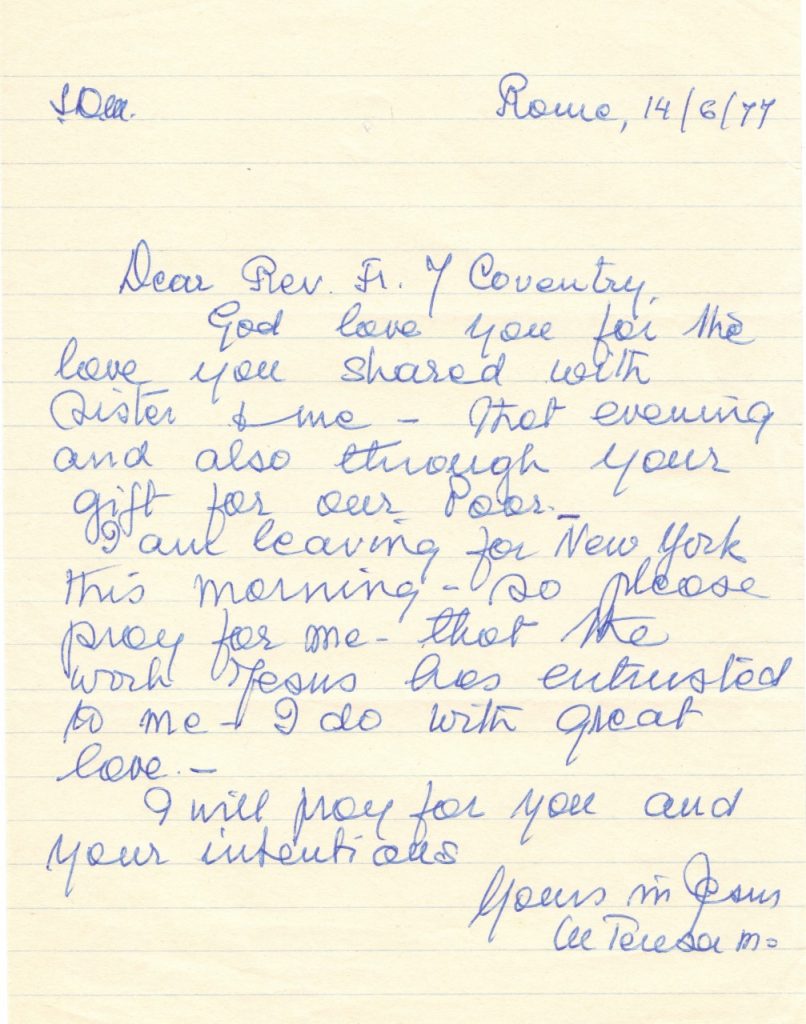 LDM. Rome, 14/6/77
Dear Rev. Fr. J Coventry,
God love you for the
love you shared with
Sister & me – that evening
and also through your
gift for our Poor. –
I am leaving for New York
this morning – so please
pray for me – that the
work Jesus has entrusted
to me – I do with great
love. –
I will pray for you and
your intentions
Yours in Jesus
M Teresa mc